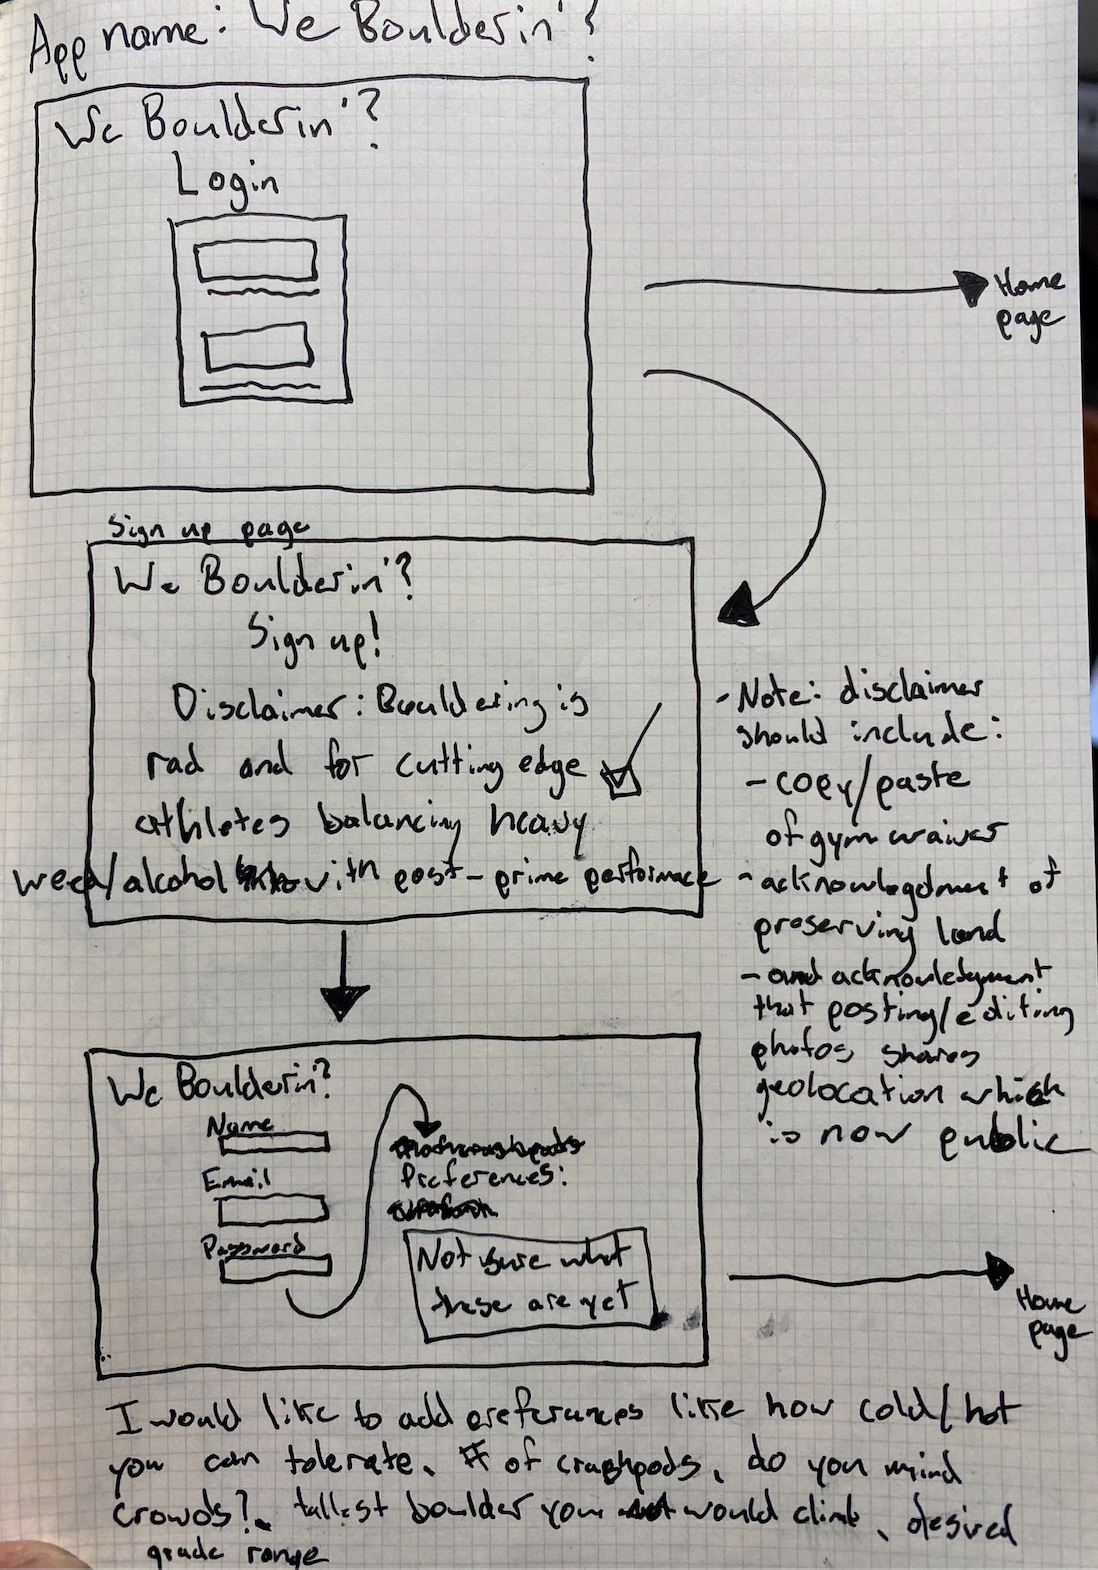 App name: We Boulderin'?
We Boulderin'?
Login
Home
page
Sign up page
We Boulderin'?
Sign up!
Disclaimer: Bouldering is
rad and for cutting edge
athletes balancing heavy
weed/alcohol with post-prime performance
- Note: disclaimer
should include:
- copy/paste
of gym waiver
- acknowlegdment of
preserving land
- and acknowledgment
that posting/editing
photos shares
geolocation which
is now public
We Boulderin'?
Name
Email
Password
Preferences:
Not sure what
these are yet
Home
page
I would like to add preferences like how cold/hot
you can tolerate, # of crashpads, do you mind
crowds?, tallest boulder you would climb, desired
grade range